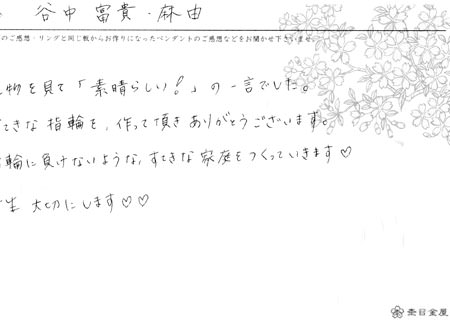 谷中 富貴・麻由
のご感想・リングと同じ板からお作りになったペンダントのご感想などをお聞かせ下さいませ。
物を見て「素晴らしい!」の一言でした。
てきな指輪を、作って頂きありがとうございます。
輪に負けないような、すてきな家庭をつくっていきます♡
生 大切にします♡♡
杢目金屋